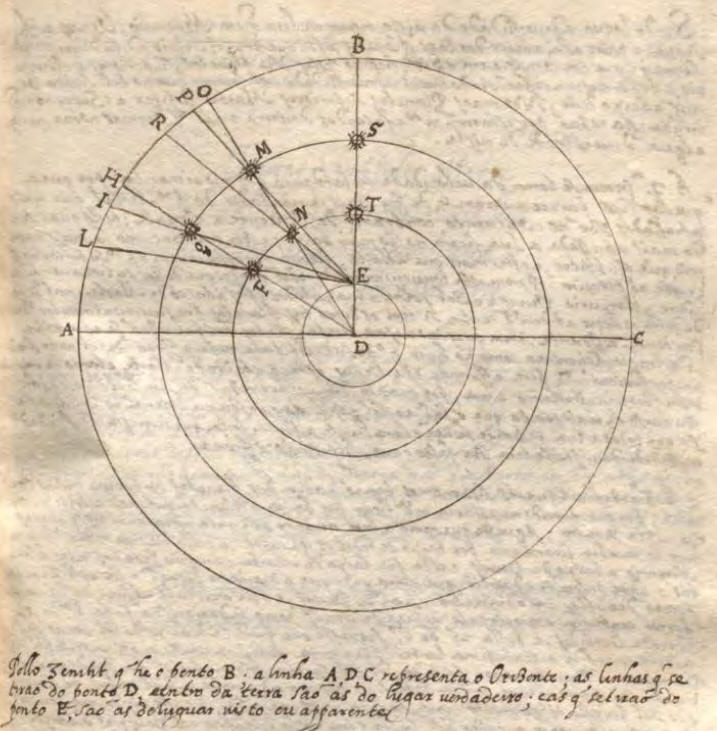 B
P O
R
M
S
H
I
N
T
L
8
F
E
A
D
C
Pello Zeniht q̃ he o ponto B. a linha A, D C representa o OriZonte; as linhas q̃ se
tirão do ponto D, centro da terra são as do lugar verdadeiro; e as q̃ se tirão do
ponto E, são as do luguar visto ou apparente